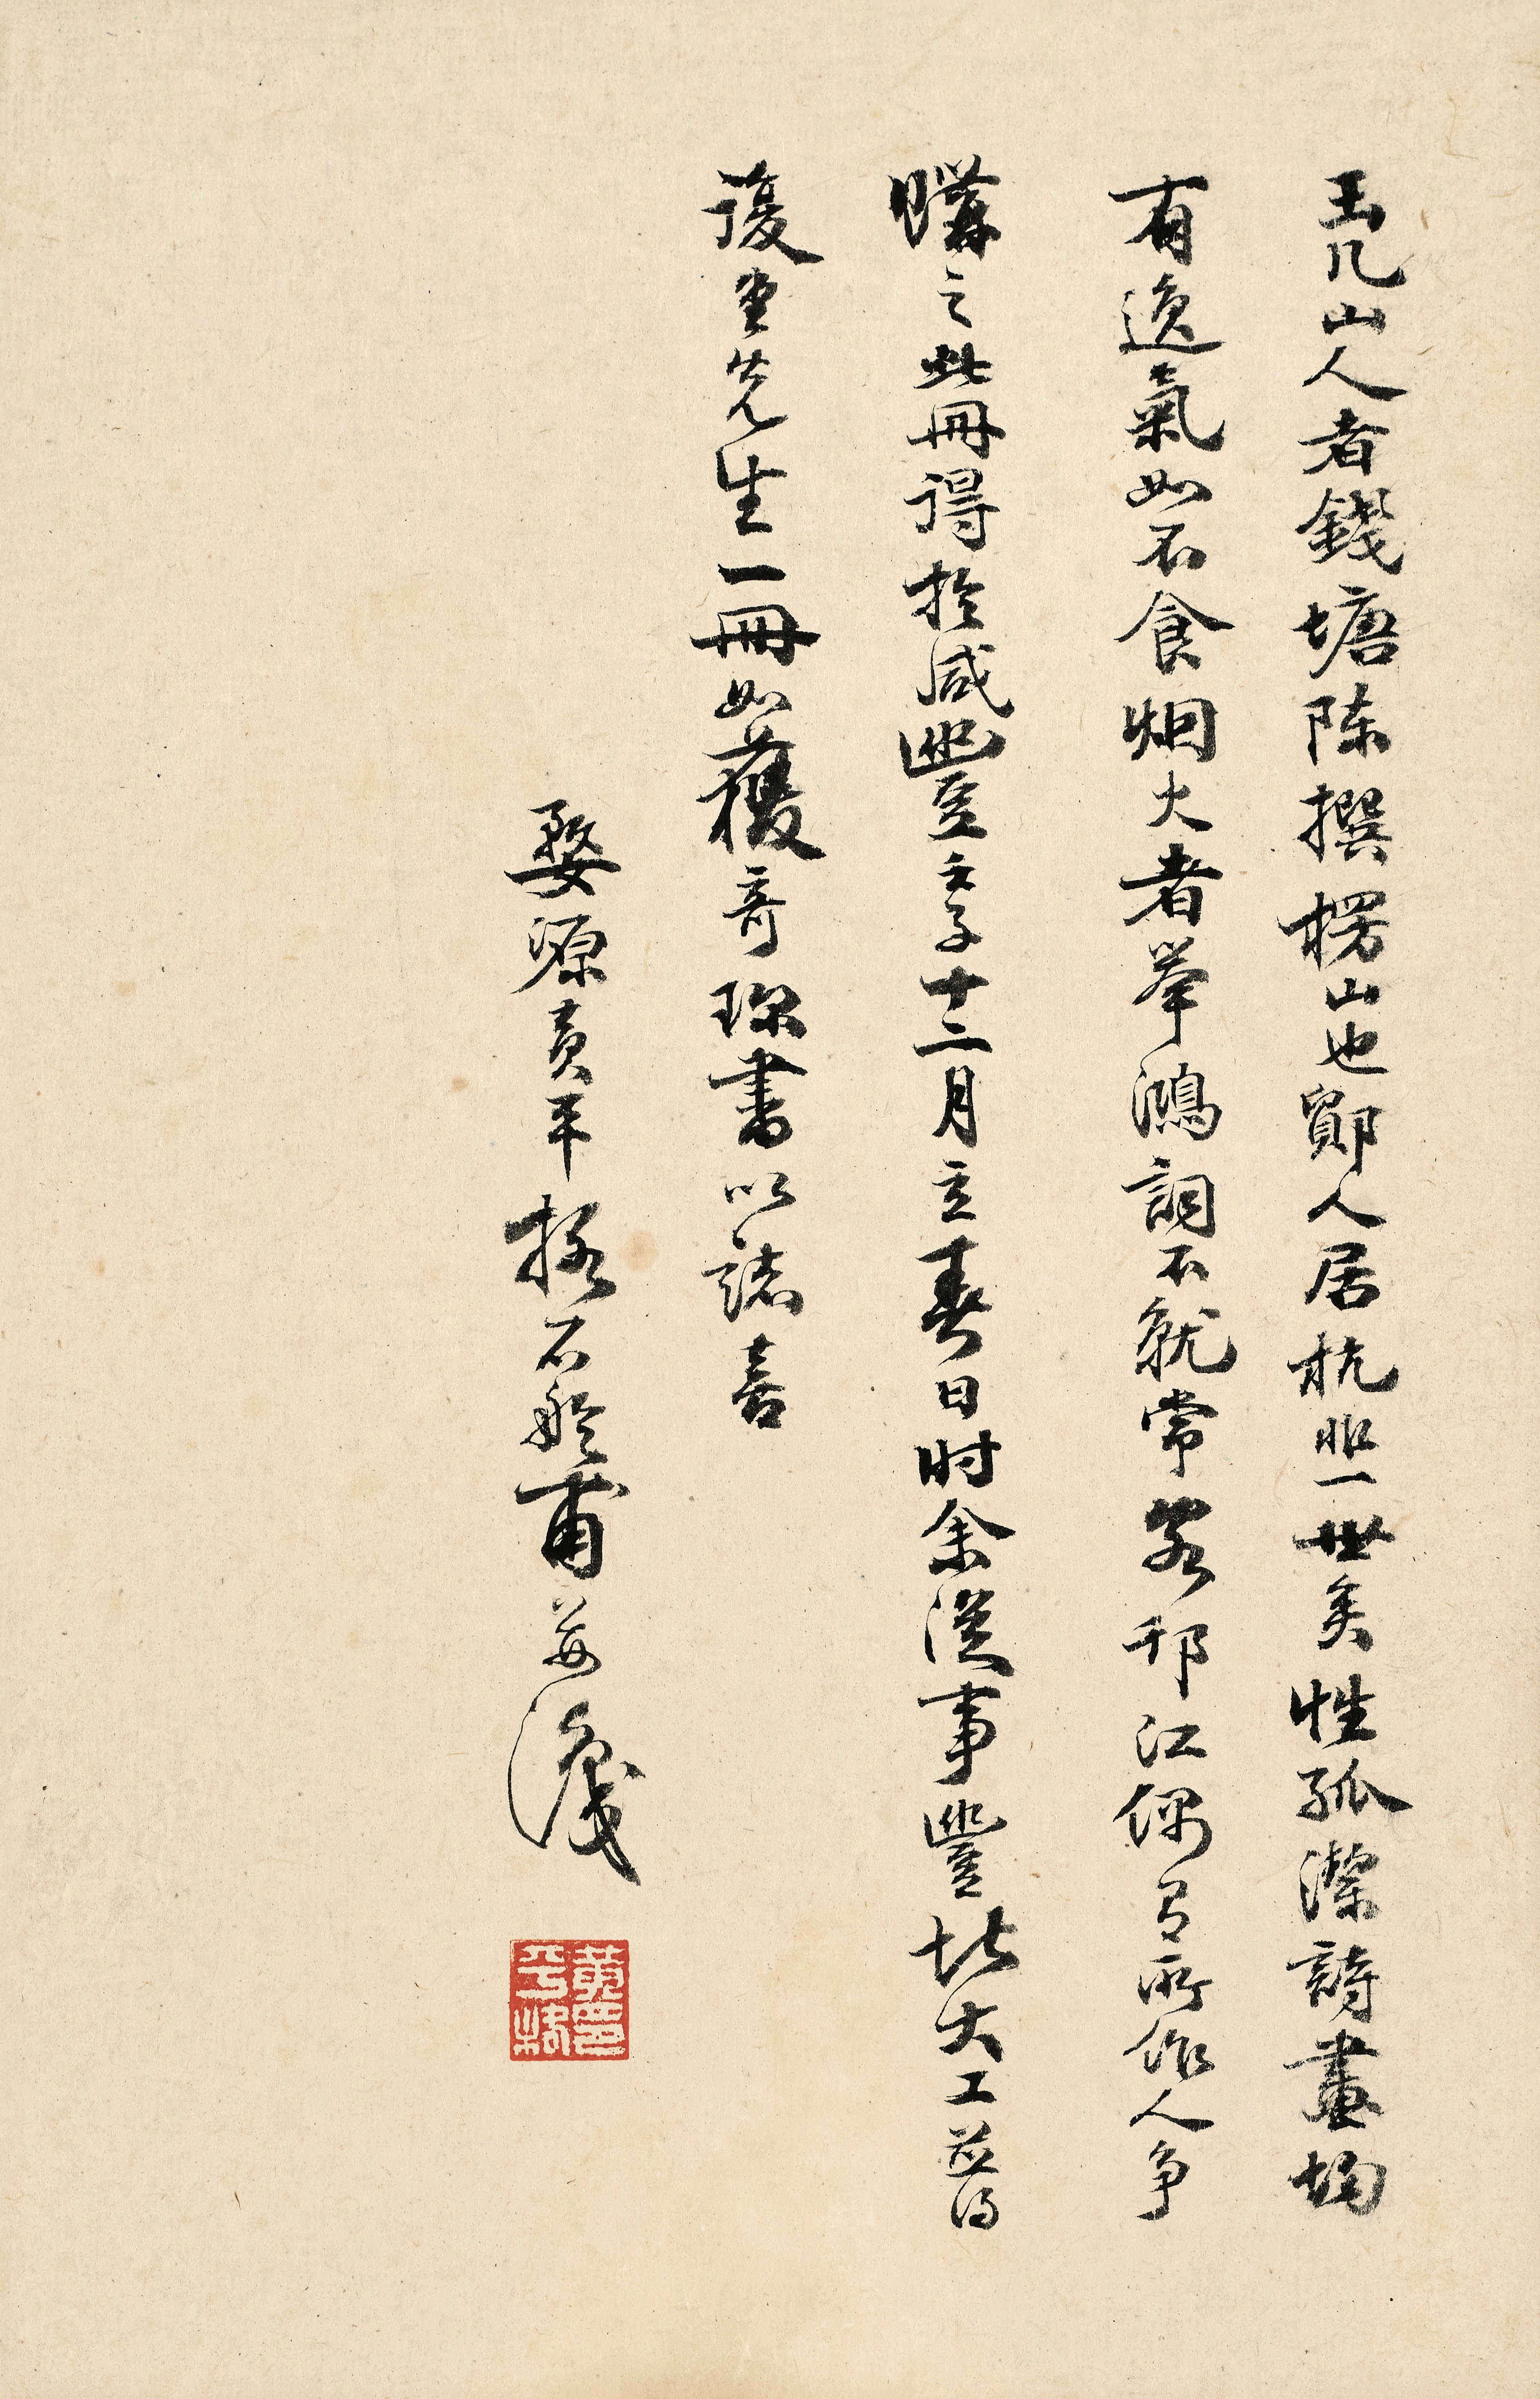 玉几山人者錢塘陳撰楞山也鄞人居杭𠀉一世矣性孤潔詩畫均
有逸氣如不食烟火者舉鴻詞不就常客邗江偶有所作人爭
購之此冊得於咸豐壬子十二月立春日時余從事豐北大工並得
復堂先生一冊如獲奇珍書以誌喜
婺源黃平格石舲甫並識
黃印平格